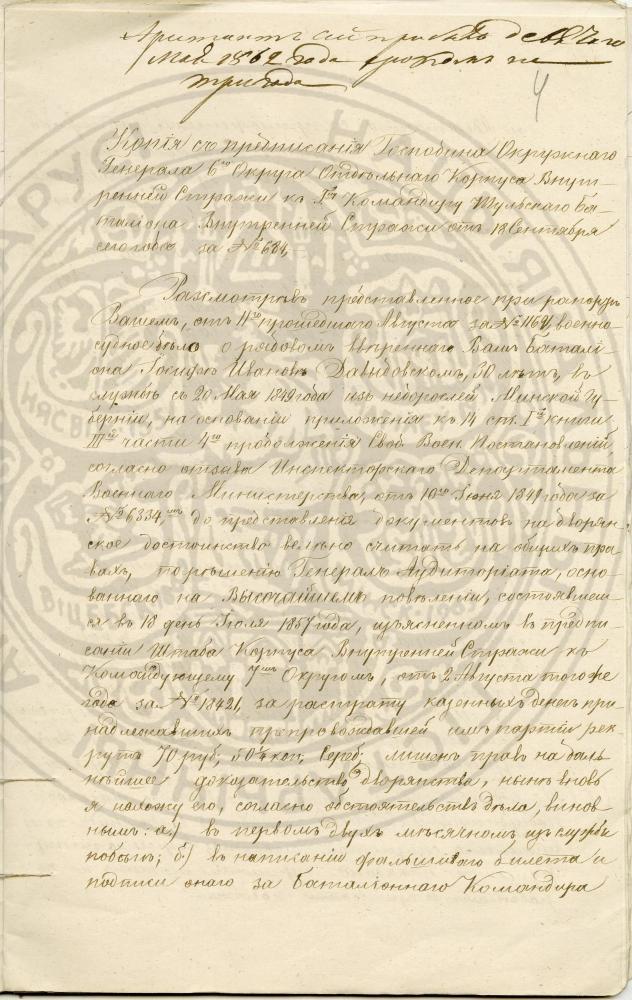 Арестантъ сей прибылъ девятаго
Мая 1862 года срокомъ на
три года
4
Копія съ предписанія Господина Окружнаго
Генерала 6го Округа Отдѣльнаго Корпуса Внут-
ренней Стражи къ Гну Командиру Тульскаго Ба-
таліона Внутренней Стражи отъ 18 Сентября
сего года за № 684,
Разсмотрѣвъ представленное при рапортѣ
Вашемъ, отъ 11го прошедшаго Августа за № 1162, военно
судное дѣло о рядовомъ ввѣреннаго Вамъ Баталі-
она Іосифѣ Ивановѣ Давыдовскомъ, 30 лѣтъ, въ
службѣ съ 20 Мая 1849 года изъ недорослей Минской Гу-
берніи, на основаніи приложенія къ 14 ст. Iй книги
IIIй части 4го продолженія Свод. Воен. Постановленій
согласно отзыва Инспекторскаго Департамента
Военнаго Министерства, отъ 10го Іюня 1849 года за
№ 6334, до представленія документовъ на дворян-
ское достоинство велѣно считать на общихъ пра-
вахъ, по рѣшенію Генералъ Аудиторіата, осно-
ваннаго на Высочайшемъ повелѣніи, состоявшем-
ся въ 18 день Іюля 1857 года, изъясненномъ въ предпи-
саніи Штаба Корпуса Внутренней Стражи къ
Командующему Округомъ, отъ 2 Августа того же
года за № 18421, за растрату казенныхъ денегъ при-
надлежавшихъ препровождавшей имъ партіи рек-
рутъ 70 руб. 50¼ коп. Сереб; лишенъ правъ на даль-
нѣйшее доказательство дворянства, нынѣ вновь
я нахожу его, согласно обстоятельствъ дѣла, винов-
нымъ: а) въ первомъ двухъ мѣсячномъ изъ службы
побѣгѣ; б) въ написаніи фальшиваго билета и
подписи онаго за Баталіоннаго Командира